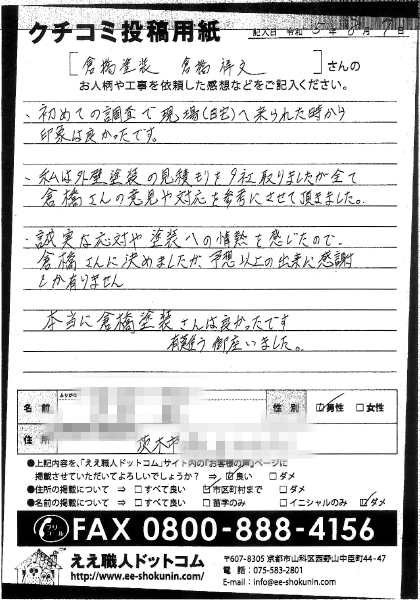 クチコミ投稿用紙
記入日 令和5年8月7日
[倉橋塗装 倉橋祥文]さんの
お人柄や工事を依頼した感想などをご記入ください。
・初めての調査で現場(自宅)へ来られた時から
印象は良かったです。
・私は外壁塗装の見積もりを9社取りましたが全て
倉橋さんの意見や対応を参考にさせて頂きました。
・誠実な応対や塗装への情熱を感じたので、
倉橋さんに決めましたが、予想以上の出来に感謝
しか有りません
本当に倉橋塗装さんは良かったです
有難う御座いました。
ふりがな
名前 性別 ☑男性 □女性
住所 茨木市
●上記内容を、「ええ職人ドットコム」サイト内の「お客様の声」ページに
掲載させていただいてよろしいでしょうか? ⇒ ☑良い □ダメ
●住所の掲載について ⇒ □すべて良い ☑市区町村まで □ダメ
●名前の掲載について ⇒ □すべて良い □苗字のみ □イニシャルのみ ☑ダメ
フリーコール FAX 0800-888-4156
ええ職人ドットコム
http://www.ee-shokunin.com/
〒607-8305 京都市山科区西野山中臣町44-47
電話:075-583-2801
E-mail:info@ee-shokunin.com